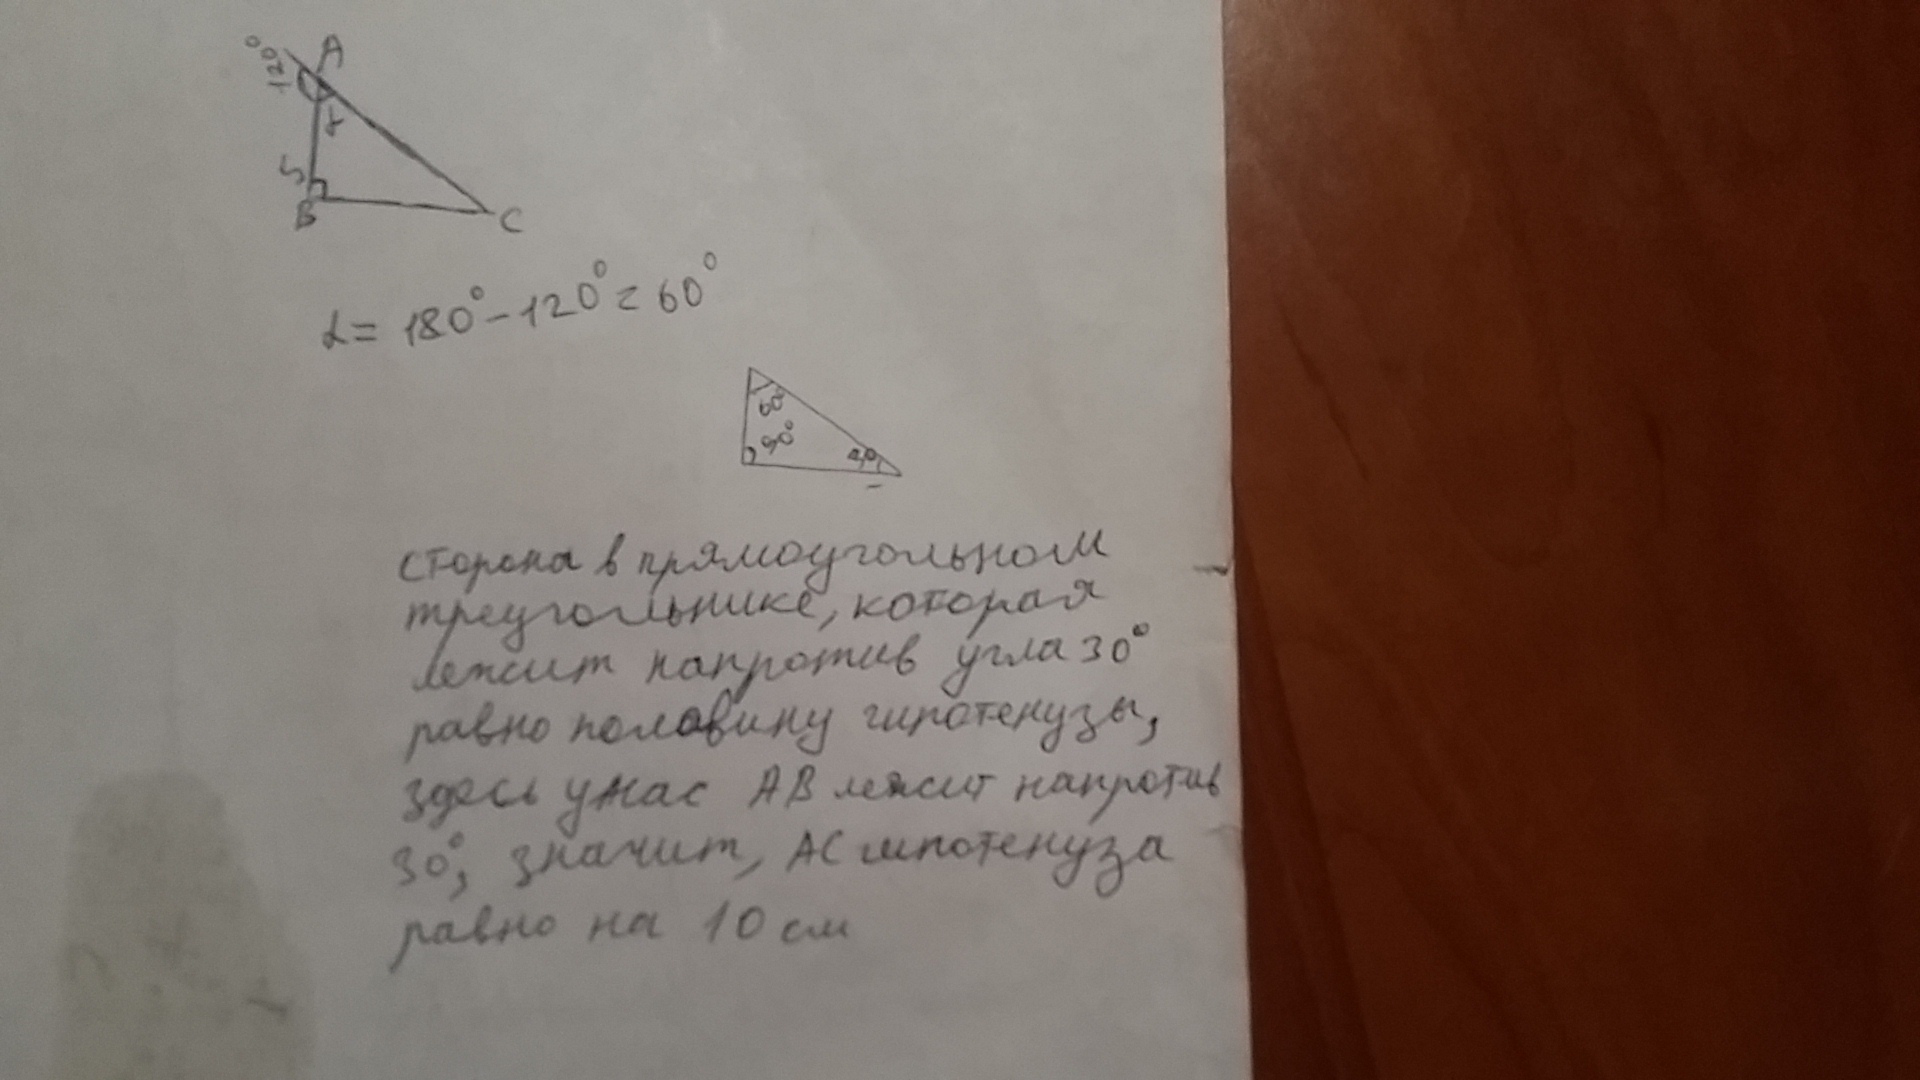 120°
A
α
5
B
C
α = 180° - 120° = 60°
60°
90°
30
сторона в прямоугольном
треугольнике, которая
лежит напротив угла 30°
равно половину гипотенузы,
здесь у нас AB лежит напротив
30°, значит, AC гипотенуза
равно на 10 см